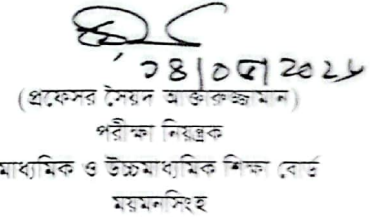 (প্রফেসর সৈয়দ আক্তারুজ্জামান)
পরীক্ষা নিয়ন্ত্রক
মাধ্যমিক ও উচ্চমাধ্যমিক শিক্ষা বোর্ড
ময়মনসিংহ